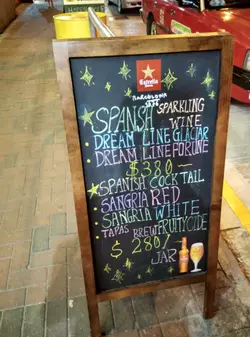 Estrella
Damm
BARCELONA
1876
SPANSH SPARKLING
WINE
DREAM LINE GLACIAR
DREAM LINE FORUNE
$380—
SPANISH COCKTAIL
SANGRIA RED
SANGRIA WHITE
TAPAS BREW FRUITYCIDE
$280/
JAR